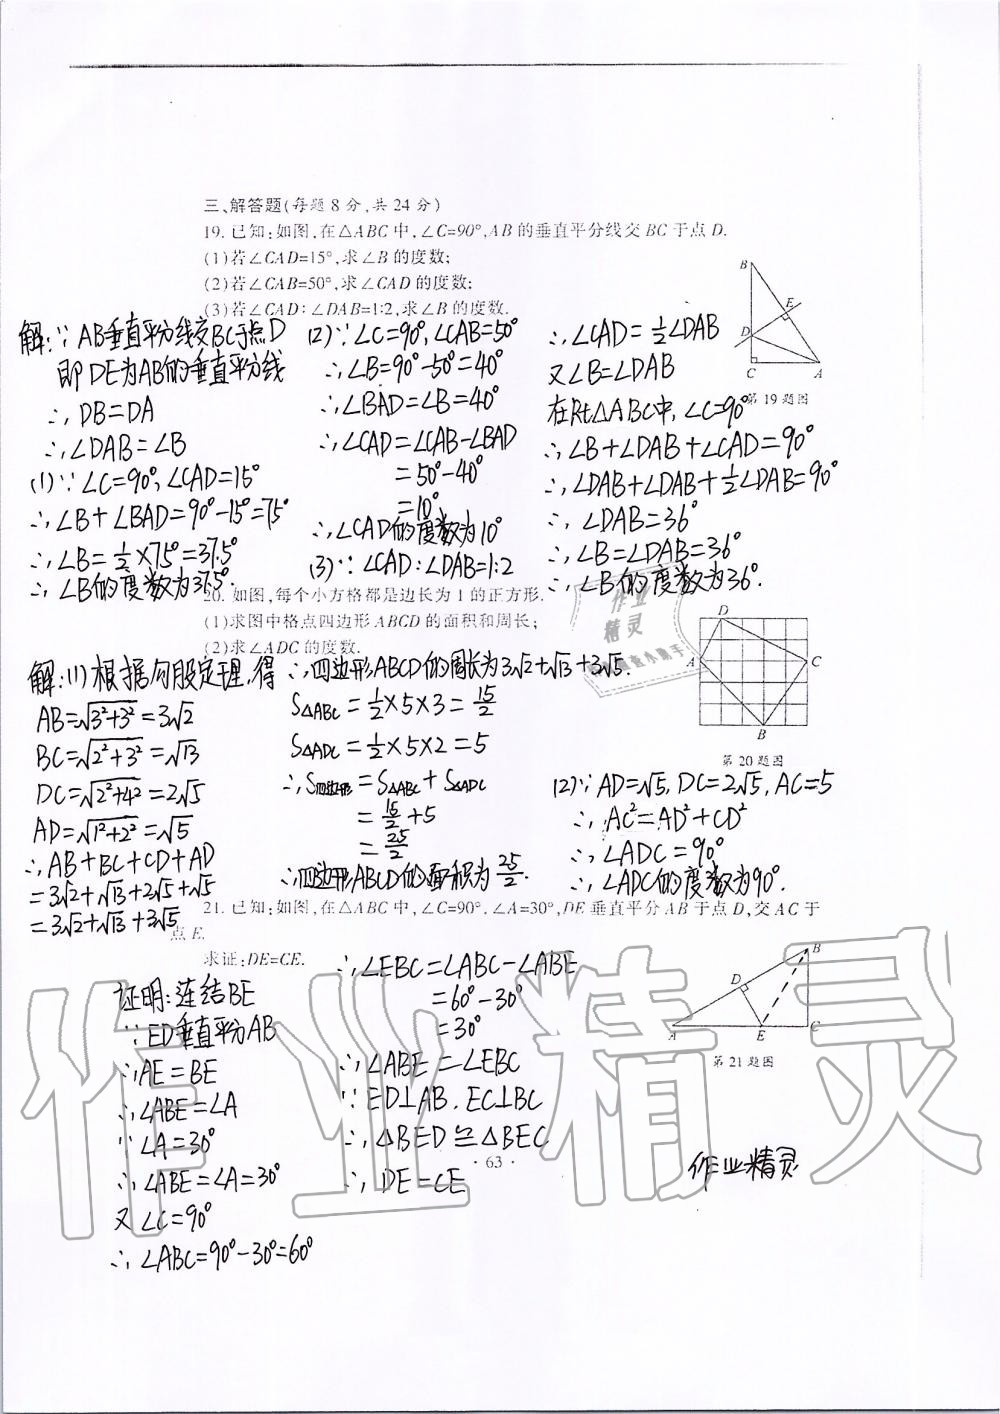 三、解答题(每题8分,共24分)
19. 已知:如图,在△ABC中,∠C=90°,AB的垂直平分线交BC于点D.
(1)若∠CAD=15°,求∠B的度数;
(2)若∠CAB=50°,求∠CAD的度数;
(3)若∠CAD:∠DAB=1:2,求∠B的度数.
B
E
D
C
A
第19题图
解:∵AB垂直平分线交BC于点D
即DE为AB的垂直平分线
∴DB=DA
∴∠DAB=∠B
(1)∵∠C=90°,∠CAD=15°
∴∠B+∠BAD=90°-15°=75°
∴∠B=½×75°=37.5°
∴∠B的度数为37.5°.
(2)∵∠C=90°,∠CAB=50°
∴∠B=90°-50°=40°
∴∠BAD=∠B=40°
∴∠CAD=∠CAB-∠BAD
=50°-40°
=10°
∴∠CAD的度数为10°
(3)∵∠CAD:∠DAB=1:2
∴∠CAD=½∠DAB
又∠B=∠DAB
在Rt△ABC中,∠C=90°
∴∠B+∠DAB+∠CAD=90°
∴∠DAB+∠DAB+½∠DAB=90°
∴∠DAB=36°
∴∠B=∠DAB=36°
∴∠B的度数为36°.
20. 如图,每个小方格都是边长为1的正方形.
(1)求图中格点四边形ABCD的面积和周长;
(2)求∠ADC的度数.
作业
精灵
D
A
C
B
第20题图
解:(1)根据勾股定理,得
AB=√3²+3²=3√2
BC=√2²+3²=√13
DC=√2²+4²=2√5
AD=√1²+2²=√5
∴AB+BC+CD+AD
=3√2+√13+2√5+√5
=3√2+√13+3√5
∴四边形ABCD的周长为3√2+√13+3√5.
S△ABC=½×5×3=15/2
S△ADC=½×5×2=5
∴S四边形=S△ABC+S△ADC
=15/2+5
=25/2
∴四边形ABCD的面积为25/2.
(2)∵AD=√5,DC=2√5,AC=5
∴AC²=AD²+CD²
∴∠ADC=90°
∴∠ADC的度数为90°.
21. 已知:如图,在△ABC中,∠C=90°,∠A=30°,DE垂直平分AB于点D,交AC于
点E.
求证:DE=CE.
B
D
A
E
C
第21题图
证明:连结BE
∵ED垂直平分AB
∴AE=BE
∴∠ABE=∠A
∵∠A=30°
∴∠ABE=∠A=30°
又∠C=90°
∴∠ABC=90°-30°=60°
∴∠EBC=∠ABC-∠ABE
=60°-30°
=30°
∴∠ABE=∠EBC
∵ED⊥AB,EC⊥BC
∴△BED≌△BEC
∴DE=CE
作业精灵
·63·
作业精灵